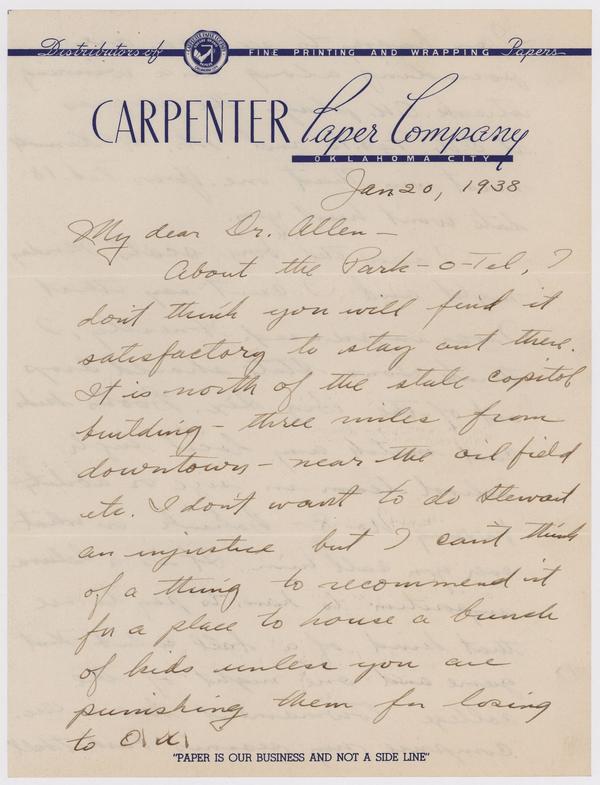 Distributors of FINE PRINTING AND WRAPPING Papers
CARPENTER Paper Company
OKLAHOMA CITY
Jan 20, 1938
My dear Dr. Allen—
About the Park-o-Tel, I
don't think you will find it
satisfactory to stay out there.
It is north of the state capitol
building - three miles from
downtown - near the oil field
etc. I don't want to do Stewart
an injustice but I can't think
of a thing to recommend it
for a place to house a bunch
of kids unless you are
punishing them for losing
to
"PAPER IS OUR BUSINESS AND NOT A SIDE LINE"